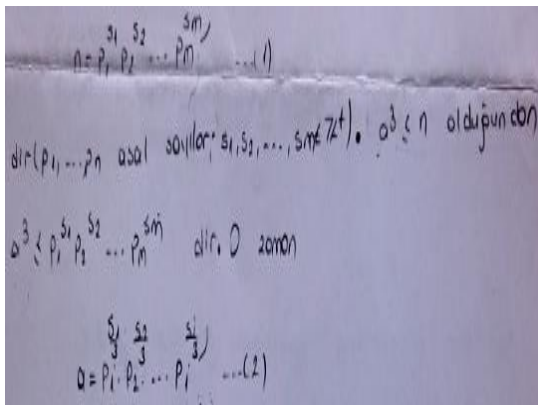 n = p₁^s₁ p₂^s₂ ... pₘ^sₘ, ...(1)
dir (p₁, ... pₙ asal sayılar; s₁, s₂, ..., sₘ ∈ Z⁺). a³ ≤ n olduğundan
a³ ≤ p₁^s₁ p₂^s₂ ... pₙ^sₘ dir. O zaman
a = p₁^(s₁/3) . p₂^(s₂/3) . ... pᵢ^(sᵢ/3), ...(2)